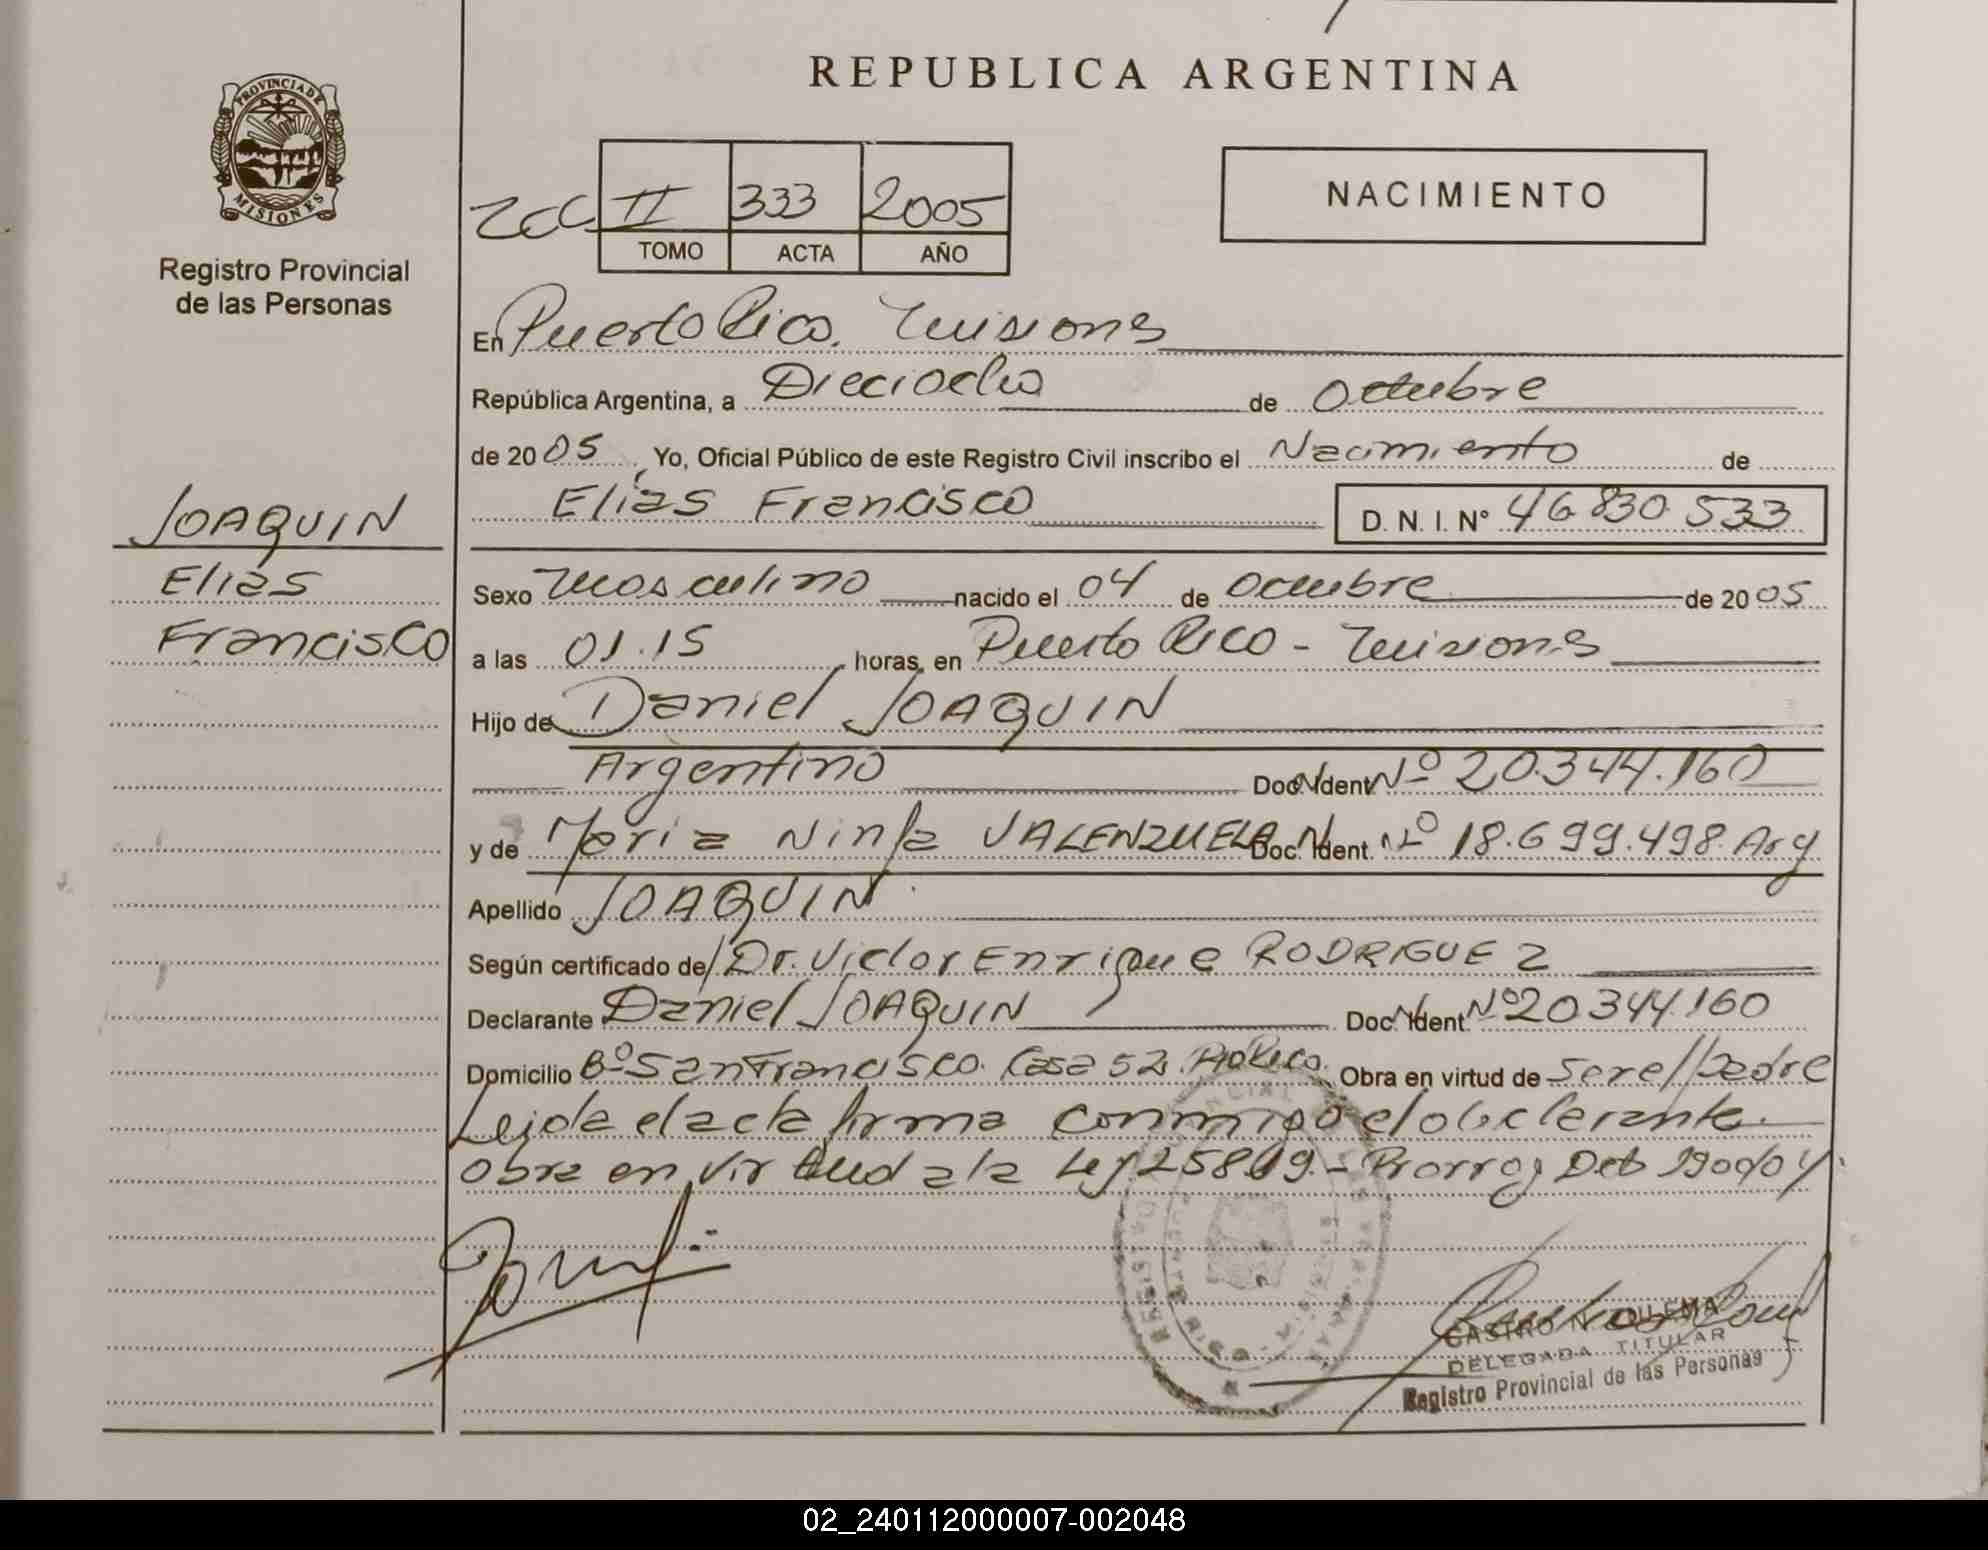 REPUBLICA ARGENTINA
PROVINCIA DE
MISIONES
Registro Provincial
de las Personas
II 333 2005
TOMO ACTA AÑO
NACIMIENTO
En Puerto Rico. Misiones
República Argentina, a Dieciocho de Octubre
de 2005. Yo, Oficial Público de este Registro Civil inscribo el Nacimiento de
Elias Francisco D. N. I. N° 46 830 533
JOAQUIN
Elias
Francisco
Sexo Masculino nacido el 04 de Octubre de 2005
a las 01.15 horas, en Puerto Rico - Misiones
Hijo de Daniel JOAQUIN
Argentino Doc. Ident. Nº 20.344.160
y de Maria Ninfa VALENZUELA Doc. Ident. Nº 18.699.498. Arg
Apellido JOAQUIN
Según certificado de/ Dr. Victor Enrique RODRIGUEZ
Declarante Daniel JOAQUIN Doc. Ident. Nº 20 344.160
Domicilio Bº San Francisco. Casa 52. Pto Rico. Obra en virtud de Ser el Padre
Leida el acta firma conmigo el declarante.
Obra en virtud a la Ley 25819.- Prorrog Det 1900/04.
CASTRO N. ZULEMA
DELEGADA TITULAR
Registro Provincial de las Personas
02_240112000007-002048